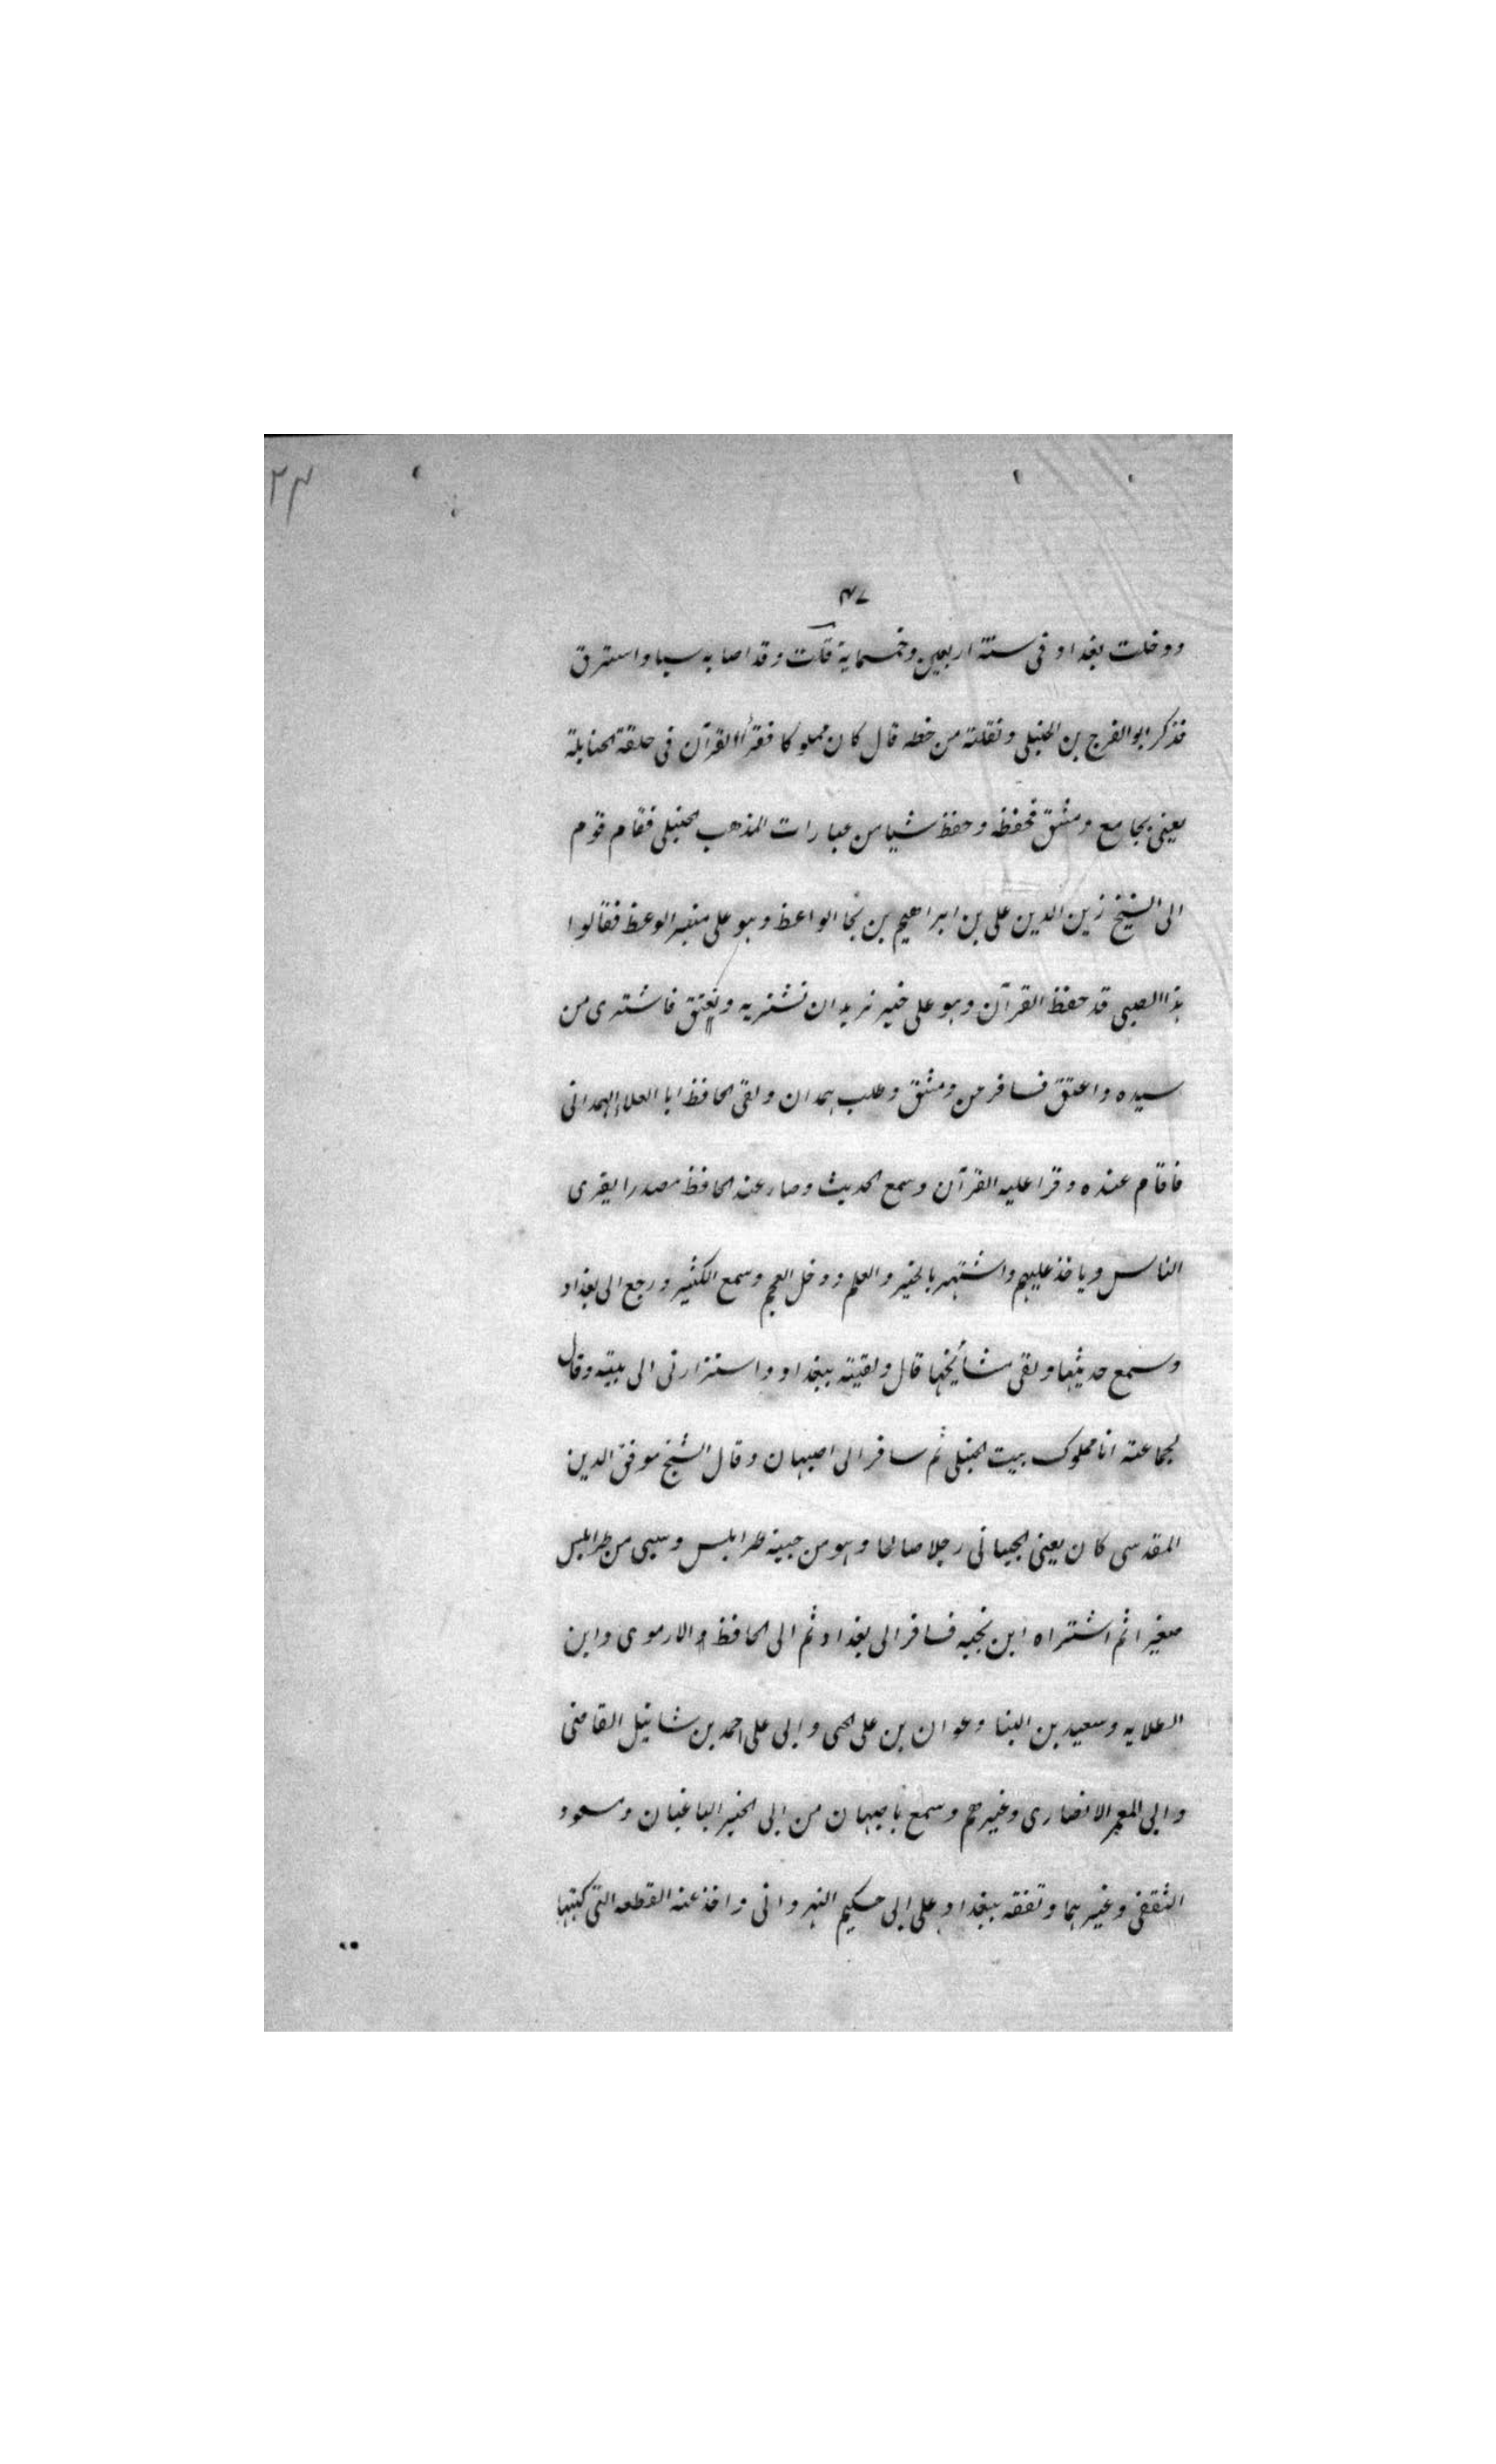 ٢٤
٤٧
ودخلت بغداد فى سنة اربعين وخمسماية قلت وقد اصابه سبا واسترق
فذكر ابو الفرج بن الحنبلى ونقلته من خطه قال كان مملوكا فقرأ القرآن فى حلقة الحنابلة
يعنى بجامع دمشق فحفظه وحفظ شيا من عبارات المذهب الحنبلى فقام قوم
الى الشيخ زين الدين على بن ابراهيم بن نجا الواعظ وهو على منبر الوعظ فقالوا
هذا الصبى قد حفظ القرآن وهو على خير نريد ان نشتريه ونعتق فاشترى من
سيده واعتق فسافر من دمشق وطلب همدان ولقى الحافظ ابا العلاء الهمدانى
فاقام عنده وقرا عليه القرآن وسمع الحديث وصار عند الحافظ مصدرا يقرى
الناس وياخذ عليهم واشتهر بالخير والعلم ودخل العجم وسمع الكثير ورجع الى بغداد
وسمع حديثها ولقى مشائخها قال ولقيته ببغداد واستزارنى الى بيته وقال
لجماعته انا مملوك بيت الحنبلى ثم سافر الى اصبهان وقال الشيخ موفق الدين
المقدسى كان يعنى الجبانى رجلا صالحا وهو من جبة طرابلس وسبى من طرابلس
صغيرا ثم اشتراه ابن نجيه فسافر الى بغداد ثم الى الحافظ والارموى وابن
العلايه وسعيد بن البنا وعوان بن على الحى وابى على احمد بن شاتيل القاضى
وابى المعمر الانصارى وغيرهم وسمع باصبهان من ابى الخير الباغبان ومسعود
الثقفى وغيرهما وتفقه ببغداد على ابى حكيم النهروانى واخذ عنه القطعه التى كتبها